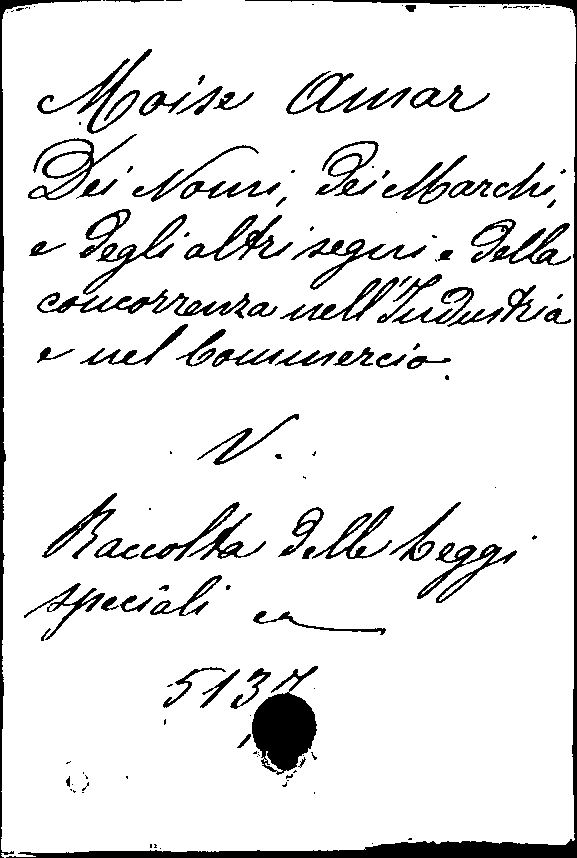 Moise Amar
Dei Nomi, dei Marchi,
e degli altri segni e della
concorrenza nell'Industria
e nel Commercio.
V.
Raccolta delle Leggi
speciali
5137